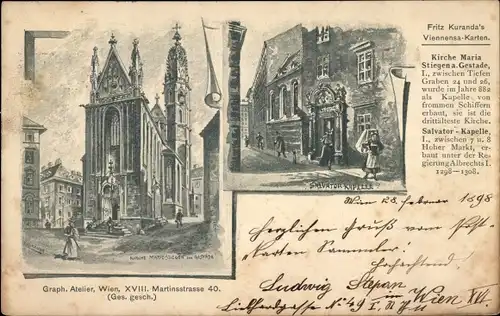 Fritz Kuranda's
Viennensa-Karten.
Kirche Maria
Stiegen a. Gestade,
I., zwischen Tiefen
Graben 24 und 26,
wurde im Jahre 882
als Kapelle von
frommen Schiffern
erbaut, sie ist die
drittälteste Kirche.
Salvator-Kapelle,
I., zwischen 7 u. 8
Hoher Markt, er-
baut unter der Re-
gierung Albrechts I.
1298-1308.
SALVATOR KAPELLE
KIRCHE MARIA STIEGEN AM GESTADE
Wien 28. Februar 1898
Herzlichen Gruß vom Post-
karten Sammler.
Hochachtend
Ludwig Stepan
Wien XVI
Graph. Atelier, Wien, XVIII. Martinsstrasse 40.
(Ges. gesch.)